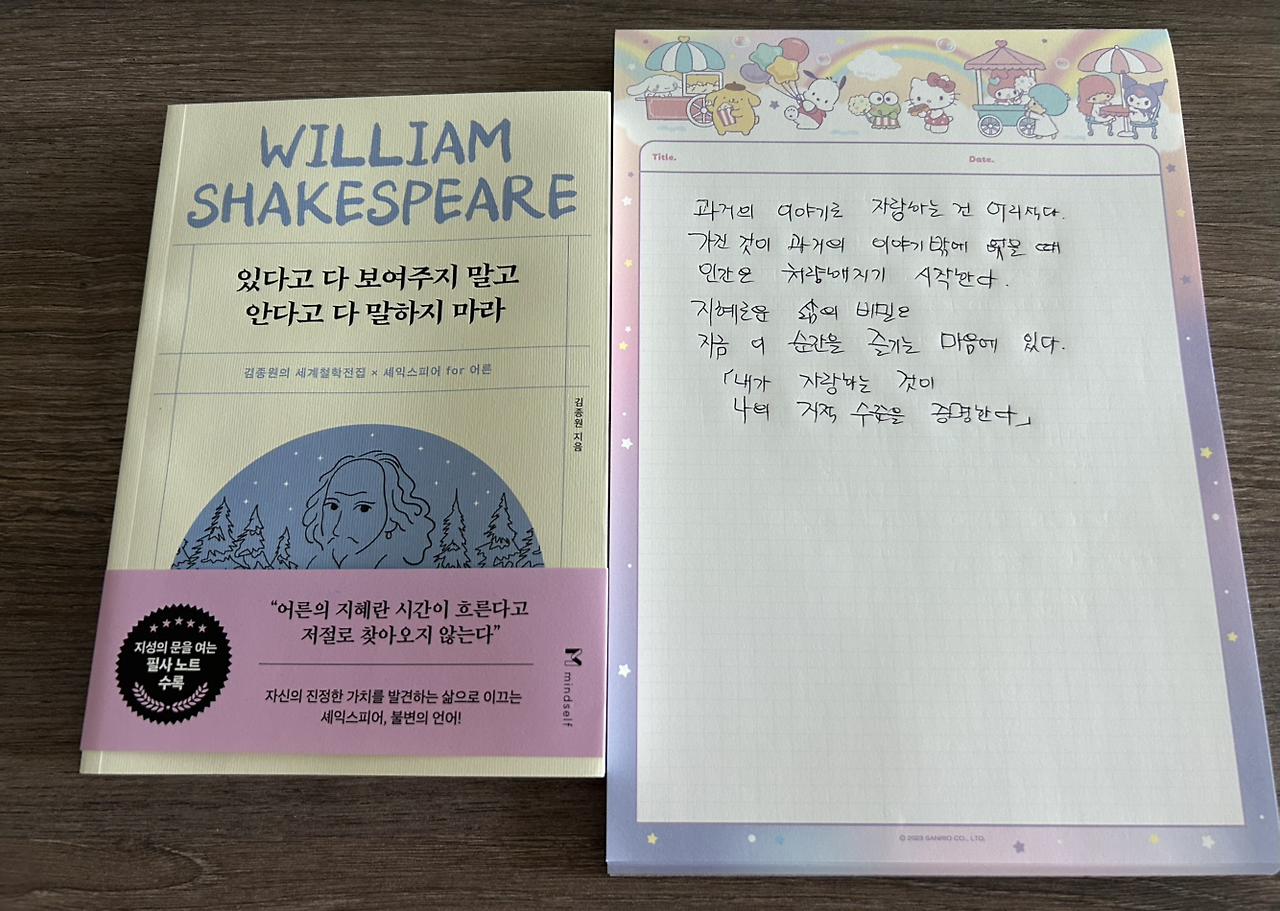 WILLIAM
SHAKESPEARE
있다고 다 보여주지 말고
안다고 다 말하지 마라
김종원의 세계철학전집 × 셰익스피어 for 어른
김종원 지음
“어른의 지혜란 시간이 흐른다고
저절로 찾아오지 않는다”
지성의 문을 여는
필사 노트
수록
자신의 진정한 가치를 발견하는 삶으로 이끄는
셰익스피어, 불변의 언어!
mindself
Title.
Date.
과거의 이야기로 자랑하는 건 어리석다.
가진 것이 과거의 이야기밖에 없을 때
인간은 처량해지기 시작한다.
지혜로운 삶의 비밀은
지금 이 순간을 즐기는 마음에 있다.
「내가 자랑하는 것이
나의 지적 수준을 증명한다」
© 2023 SANRIO CO., LTD.